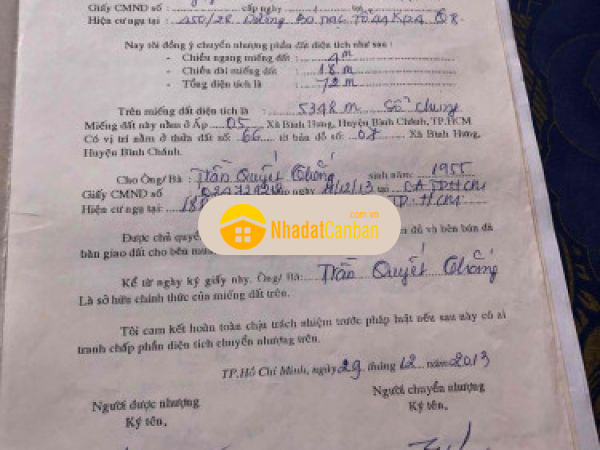 Giấy CMND số : cấp ngày tại
Hiện cư ngụ tại : 450/28 Dường Bá Trạc Tổ 44 KP4 Q8.
Nay tôi đồng ý chuyển nhượng phần đất diện tích như sau :
- Chiều ngang miếng đất : 4m
- Chiều dài miếng đất : 18 m
- Tổng diện tích là : 72 m
Trên miếng đất diện tích là : 5348 m Sổ chung
Miếng đất này nằm ở Ấp 05 Xã Bình Hưng, Huyện Bình Chánh, TP.HCM
Có vị trí nằm ở thửa đất số: 66 tờ bản đồ số: 08 Xã Bình Hưng,
Huyện Bình Chánh.
Cho Ông/ Bà : Trần Quyết Thắng sinh năm: 1955
Giấy CMND số ngày /12/13 tại CA TPHCM
Hiện cư ngụ tại: 18 TP. HCM
.com.vn
NhadatCanban
Được chủ quyền đủ và bên bán đã
bàn giao đất cho bên mua
Kể từ ngày ký giấy này. Ông/ Bà: Trần Quyết Thắng
Là sở hữu chính thức của miếng đất trên.
Tôi cam kết hoàn toàn chịu trách nhiệm trước pháp luật nếu sau này có ai
tranh chấp phần diện tích chuyển nhượng trên.
TP.Hồ Chí Minh, ngày 29 tháng 12 năm 2013
Người được nhượng Người chuyển nhượng
Ký tên. Ký tên.